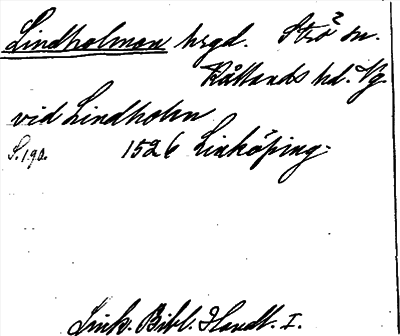 Lindholmen hrgd. Strö? sn.
Kållands hd. Vg.
vid Lindholm
S. 190. 1526 Linköping.
Link. Bibl. Handl. I.